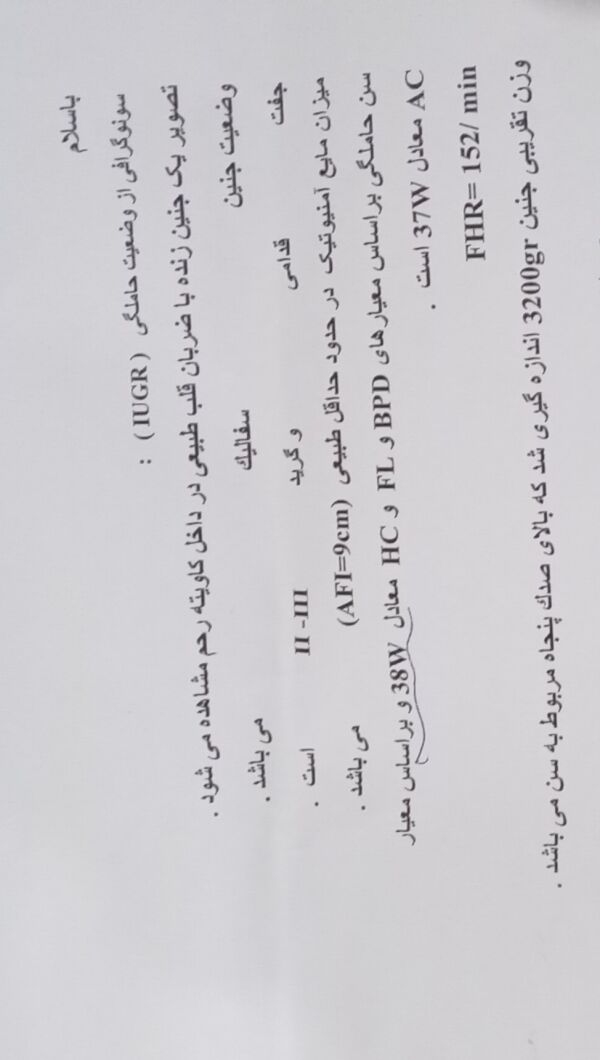 باسلام
سونوگرافی از وضعیت حاملگی ( IUGR ) :
تصویر یک جنین زنده با ضربان قلب طبیعی در داخل کاویته رحم مشاهده می شود .
وضعیت جنین سفالیک می باشد .
جفت قدامی و گرید II -III است .
میزان مایع آمنیوتیک در حدود حداقل طبیعی (AFI=9cm) می باشد .
سن حاملگی بر اساس معیارهای BPD و FL و HC معادل 38W و بر اساس معیار
AC معادل 37W است .
FHR= 152/ min
وزن تقریبی جنین 3200gr اندازه گیری شد که بالای صدک پنجاه مربوط به سن می باشد .